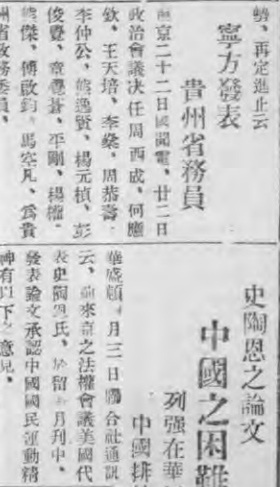 勢、再定進止云
寧方發表
貴州省務員
南京二十二日國聞電、廿二日
政治會議決任周西成、何應
欽、王天培、李燊、周恭壽、
李仲公、熊逸賢、楊元楨、彭
俊、章蒼、平剛、楊
熊傑、傅啟鈞、馬空凡、爲貴
州省政務委員、
史陶恩之論文
中國之困難
列强在華
中國排
華盛頓 月三日聯合社通訊
云、前來京之法權會議美國代
表史陶恩氏、於留 月刊中、
發表論文承認中國國民運動精
神有以下之意見、